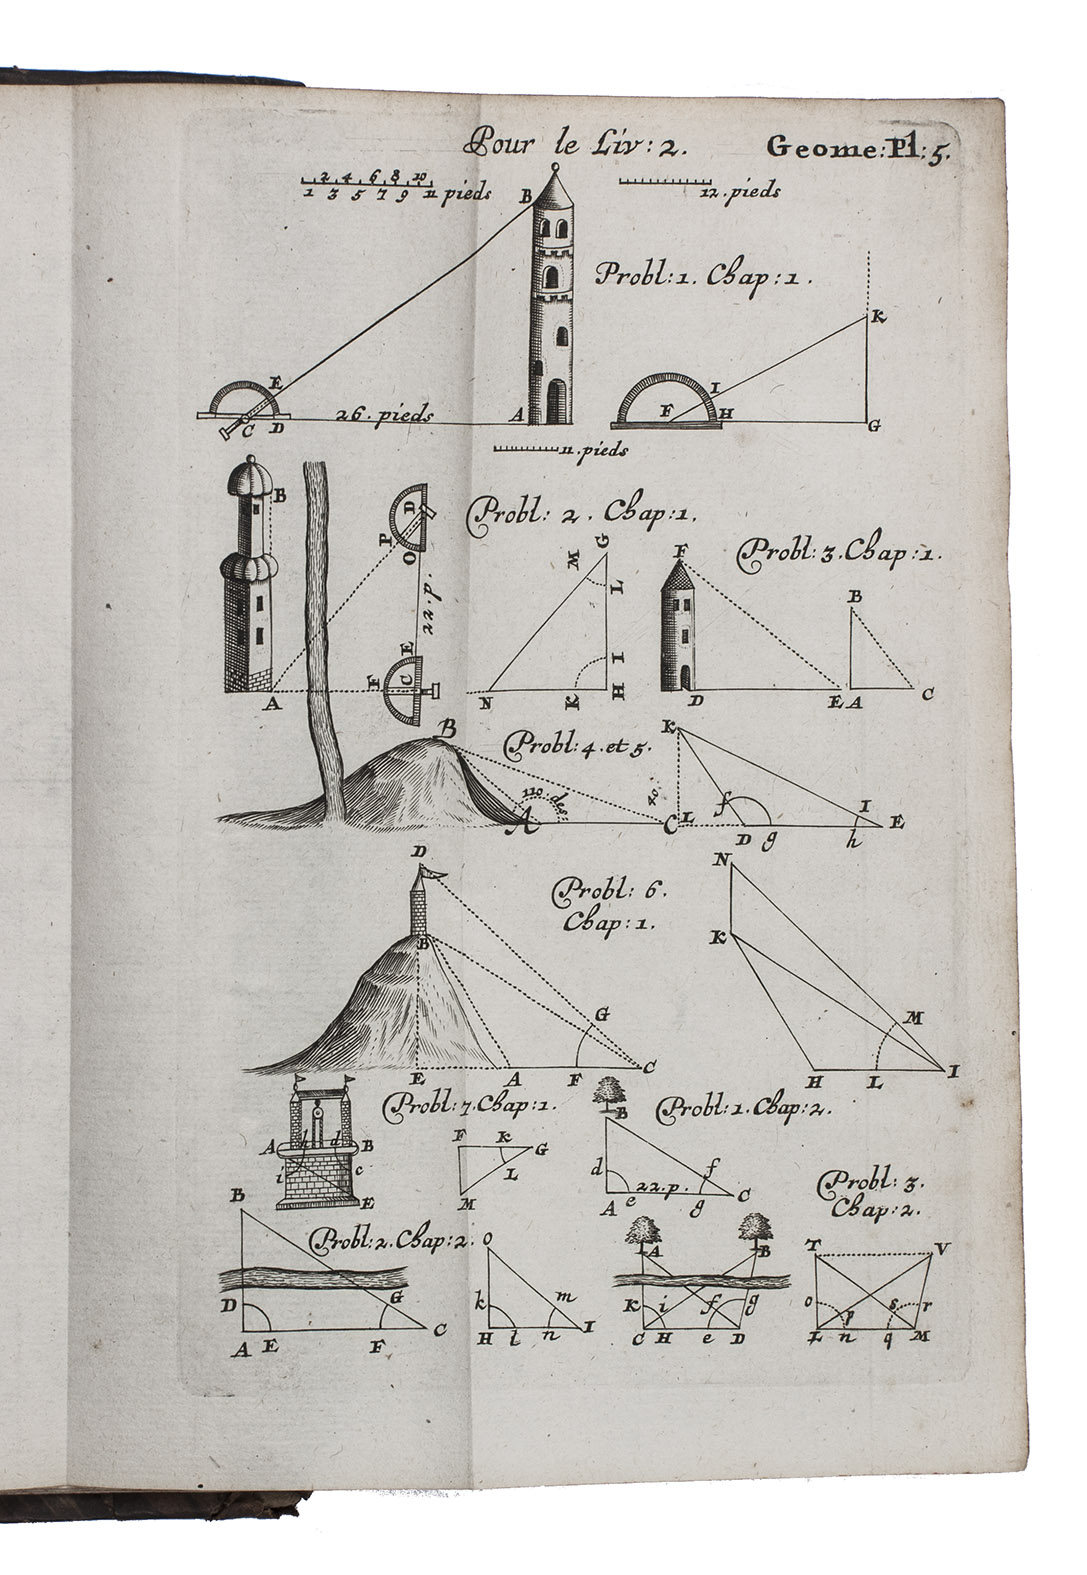 Pour le Liv: 2. Geome: Pl: 5.
2 4 6 8 10
1 3 5 7 9 11 pieds
12. pieds
B
Probl: 1. Chap: 1.
K
E
I
26. pieds
A
F
H
C D
G
11. pieds
B
D
P
O
Probl: 2. Chap: 1.
G
M
L
F
Probl: 3. Chap: 1.
B
22. p.
E
F
C
I
A
N
K
H
D
E A
C
B
Probl: 4. et 5.
K
110. des.
40.
f
I
A
C L
D g
h
E
D
Probl: 6.
Chap: 1.
N
B
K
G
M
C
E A F
H L I
Probl: 7. Chap: 1.
B
Probl: 1. Chap: 2.
A h d B
F K G
i c
L
d
f
E
M
22. p.
A e g C
Probl: 3.
Chap: 2.
B
Probl: 2. Chap: 2.
O
A B
T V
D
G
k
m
K i f g
o p s r
C
A E F
H l n I
C H e D
L n q M